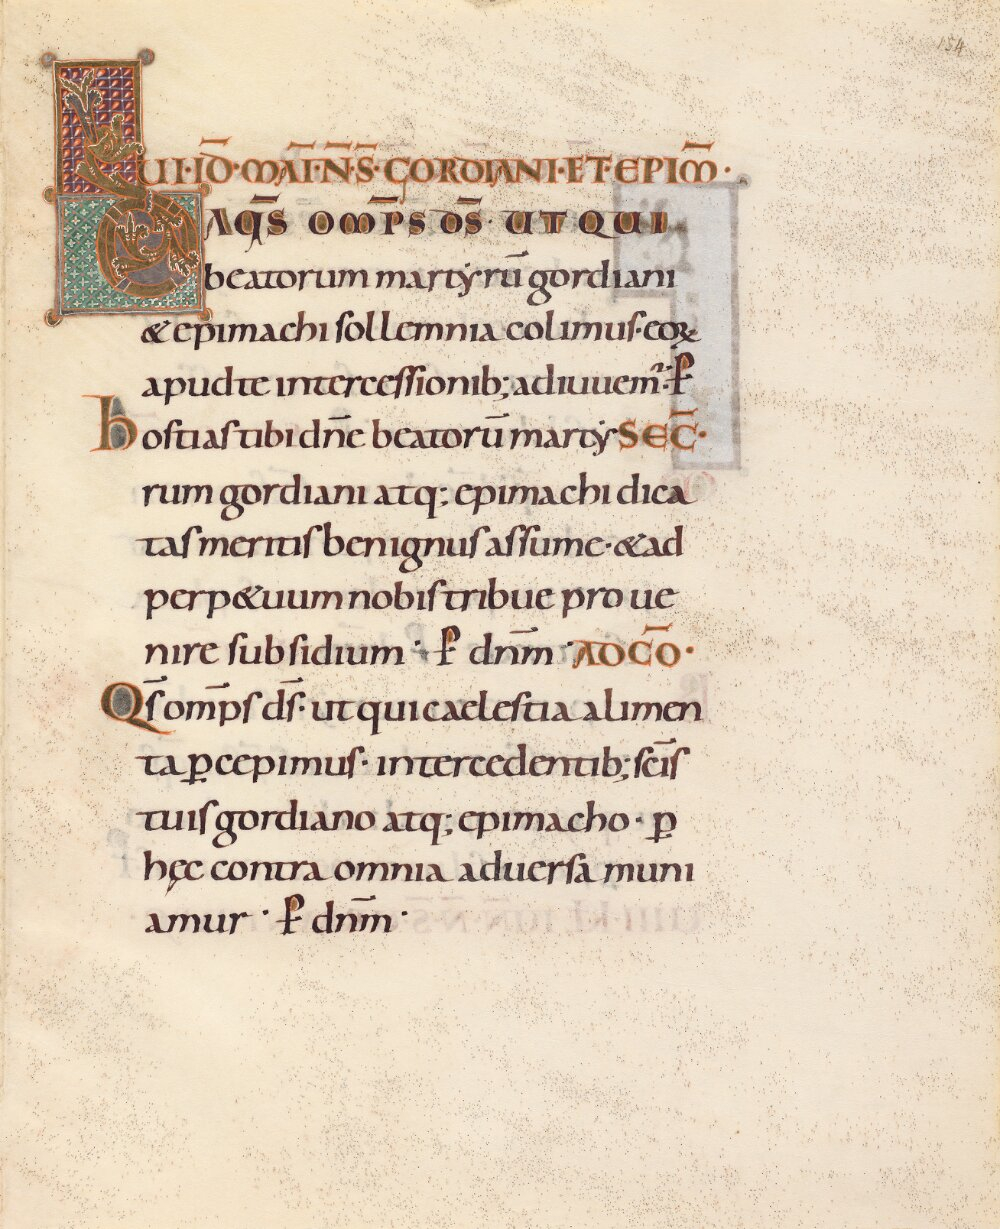 154
UI·ID̅·MAI̅·N̅·S̅·GORDIANI·ET·EPIM̅·
DAQ̅S̅ OM̅PS D̅S̅· UT QUI
beatorum martẏrū gordiani
& epimachi sollemnia colimus· eoꝝ
apud te intercessionib; adiuuem᷒· ꝑ
hostias tibi dn̅e beatorū martẏ SEC̅·
rum gordiani atq; epimachi dica
tas meritis benignus assume· & ad
perp&uum nobis tribue proue
nire subsidium · ꝑ dnm̅ · AD CO̅·
Qs̅ om̅ps ds̅· ut qui caelestia alimen
ta ꝑcepimus· intercedentib; sc̅is
tuis gordiano atq; epimacho · ꝑ
hęc contra omnia aduersa muni
amur · ꝑ dnm̅ ·